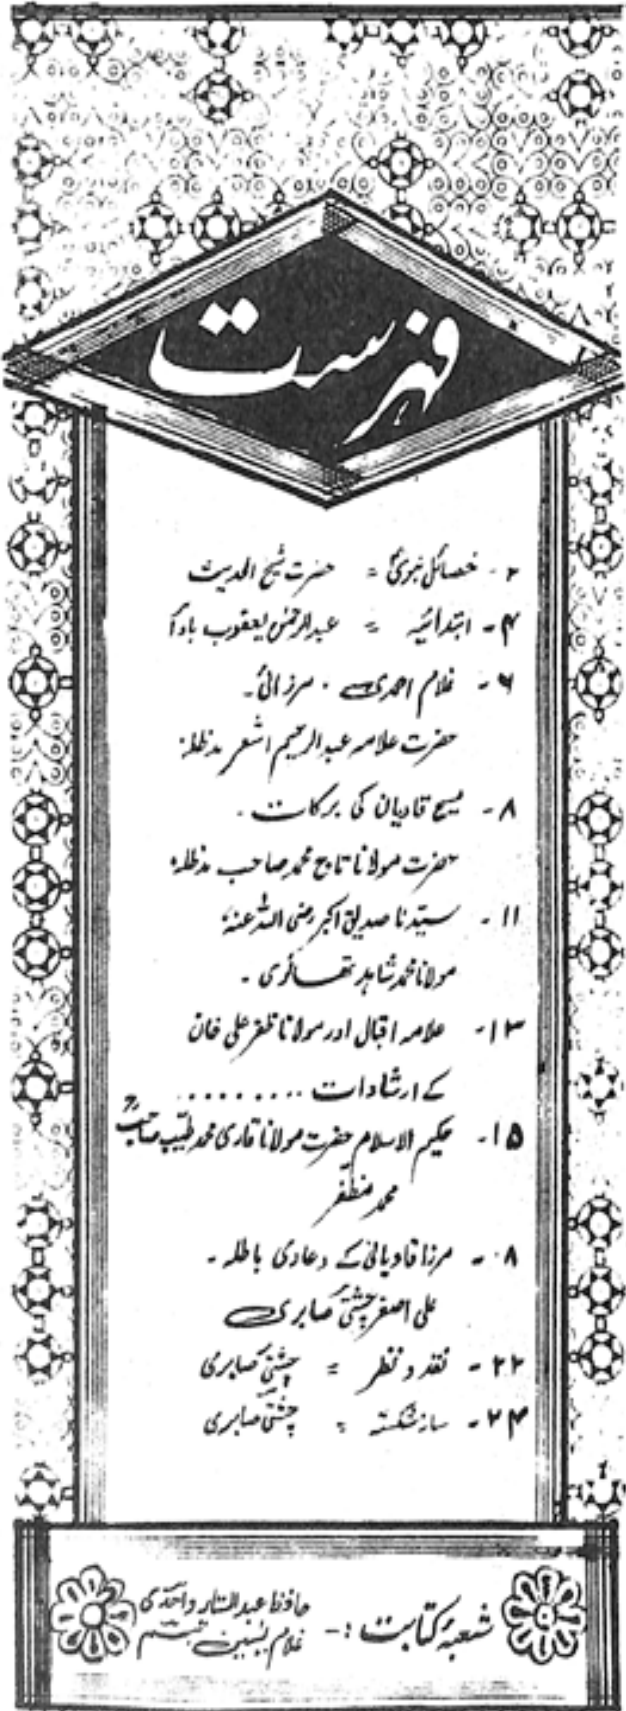 فہرست
۲- خصائل نبویؐ = حضرت شیخ الحدیث
۴- ابتدائیہ = عبدالرحمٰن یعقوب باوا
۶- غلام احمدی ۔ مرزائی ۔
حضرت علامہ عبدالرحیم اشعر مدظلہٗ
۸- مسیح قادیان کی برکات ۔
حضرت مولانا تاج محمد صاحب مدظلہٗ
۱۱- سیدنا صدیق اکبر رضی اللہ عنہٗ
مولانا محمد شاہد تھانوی ۔
۱۳- علامہ اقبال اور مولانا ظفر علی خان
کے ارشادات .........
۱۵- حکیم الاسلام حضرت مولانا قاری محمد طیب صاحبؒ
محمد مظفر
۰۸- مرزا قادیانی کے دعاوی باطلہ ۔
علی اصغر چشتی صابری
۲۲- نقد و نظر = چشتی صابری
۲۴- ساز شکستہ = چشتی صابری
شعبۂ کتابت :-
حافظ عبدالستار واحدی
غلام یٰسین تبسم